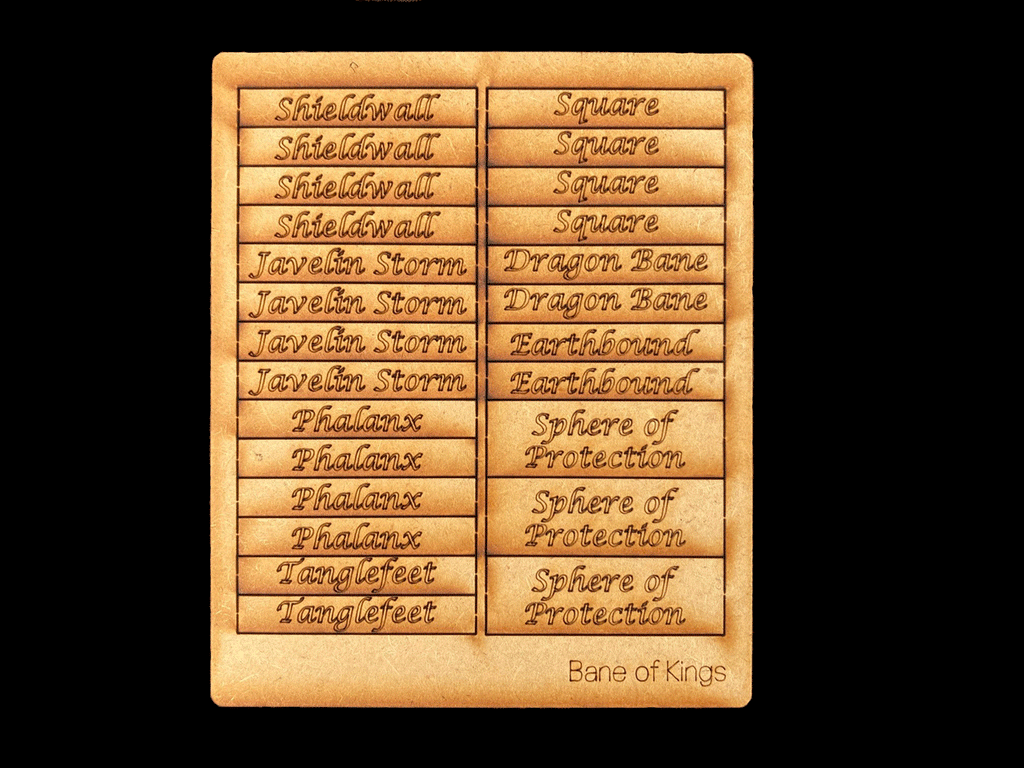 Shieldwall
Shieldwall
Shieldwall
Shieldwall
Javelin Storm
Javelin Storm
Javelin Storm
Javelin Storm
Phalanx
Phalanx
Phalanx
Phalanx
Tanglefeet
Tanglefeet
Square
Square
Square
Square
Dragon Bane
Dragon Bane
Earthbound
Earthbound
Sphere of
Protection
Sphere of
Protection
Sphere of
Protection
Bane of Kings